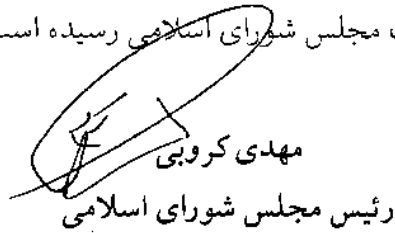 مجلس شورای اسلامی رسیده است
مهدی کروبی
رئیس مجلس شورای اسلامی